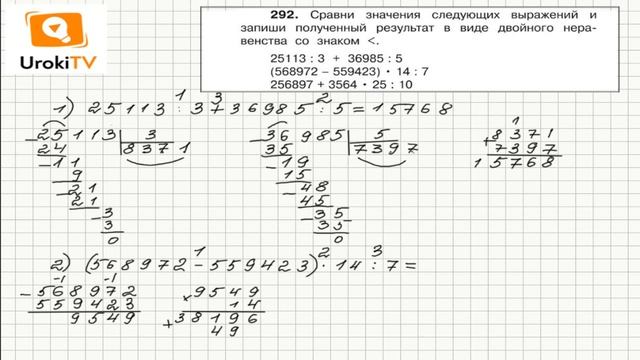 UrokiTV
292. Сравни значения следующих выражений и
запиши полученный результат в виде двойного нера-
венства со знаком <.
25113 : 3 + 36985 : 5
(568972 – 559423) · 14 : 7
256897 + 3564 · 25 : 10
1 3 2
1) 25113 : 3 + 36985 : 5 = 15768
25113 3
24 8371
11
9
21
21
3
3
0
36985 5
35 7397
19
15
48
45
35
35
0
1
8371
+ 7397
15768
1 2 3
2) (568972 - 559423) · 14 : 7 =
-1 -1
- 568972
559423
9549
9549
× 14
+ 38196
49